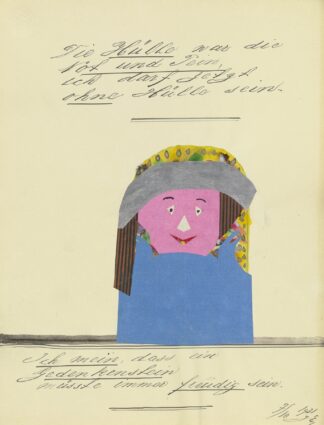 Die Hülle war die
Not und Pein,
ich darf jetzt
ohne Hülle sein.
Ich mein, dass ein
Gedenkenstein
müsste immer freudig sein.